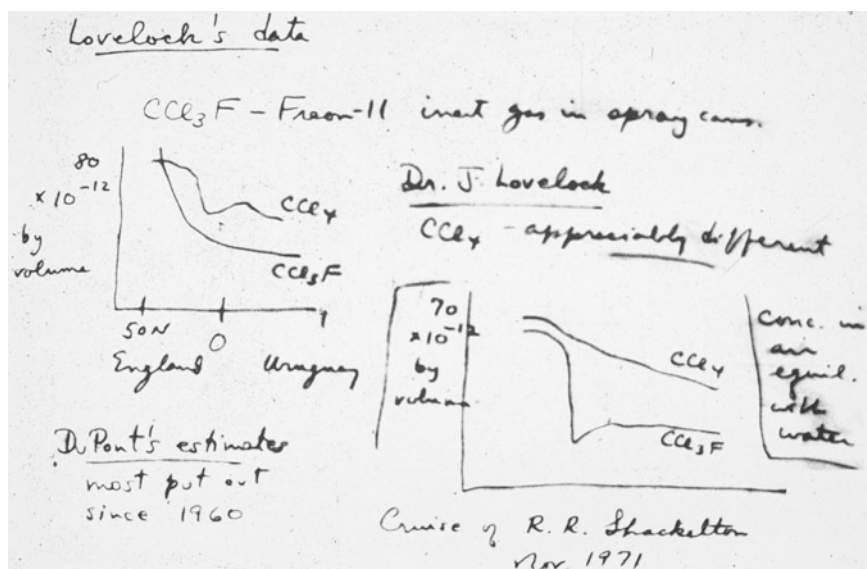 Lovelock's data
CCl₃F - Freon-11 inert gas in spray cans.
80
× 10⁻¹²
by
volume
CCl₄
CCl₃F
50N
0
England Uruguay
Dr. J Lovelock
CCl₄ - appreciably different
70
×10⁻¹²
by
volume
CCl₄
CCl₃F
Conc. in
air
equil.
with
water
DuPont's estimates
most put out
since 1960
Cruise of R. R. Shackelton
Nov. 1971